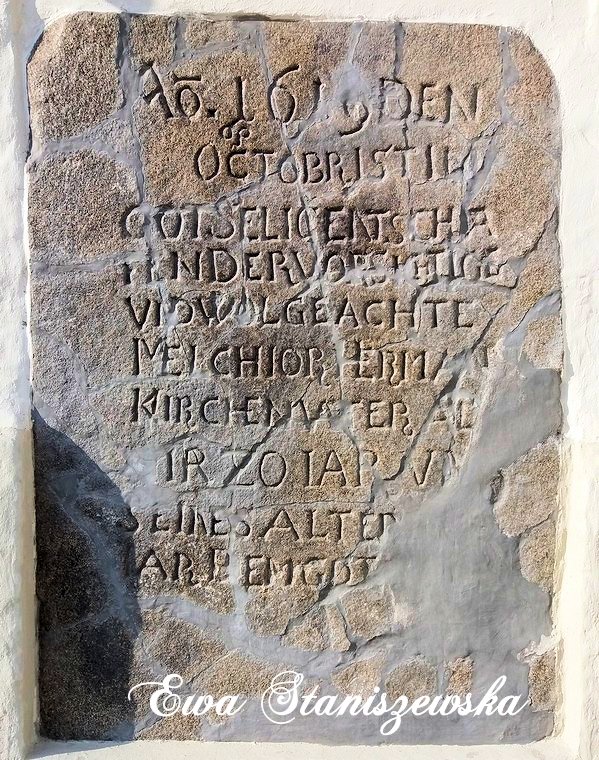 Aõ. 1619 DEN
OCTOBRIS STIL
GOTSELIG ENTSCHLA
FEN DER VORSICHTIGE
VND WOLGEACHTE
MELCHIOR HERMAN
KIRCHENVATER
IR 20 IAR VN
SEINES ALTER
IAR DEM GOT
Ewa Staniszewska